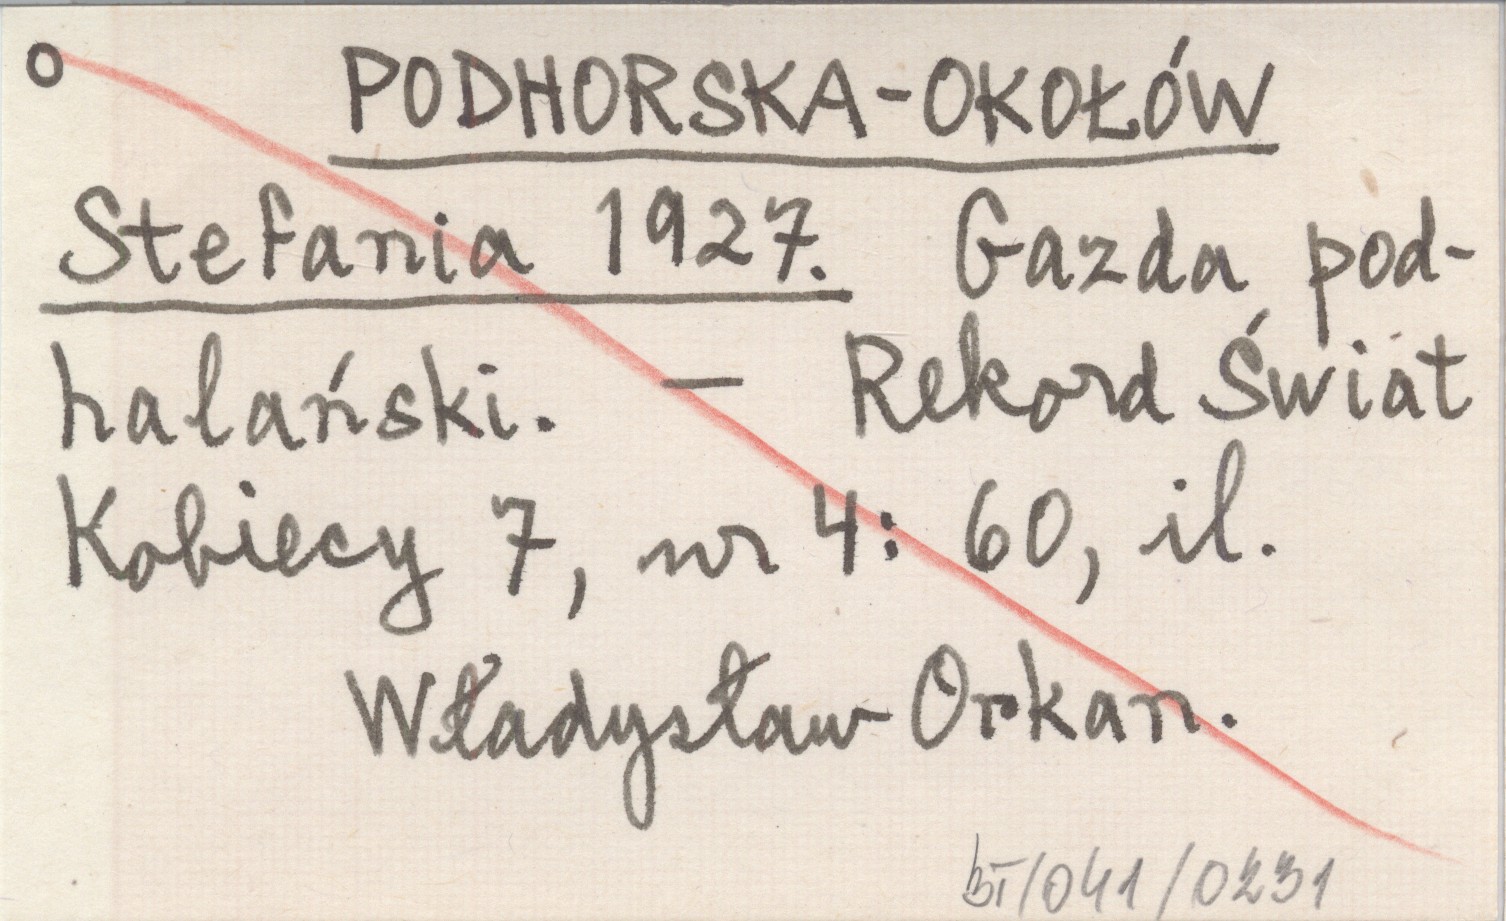 o PODHORSKA-OKOŁÓW
Stefania 1927. Gazda pod-
halański. — Rekord Świat
Kobiecy 7, nr 4: 60, il.
Władysław Orkan.
BT/041/0231